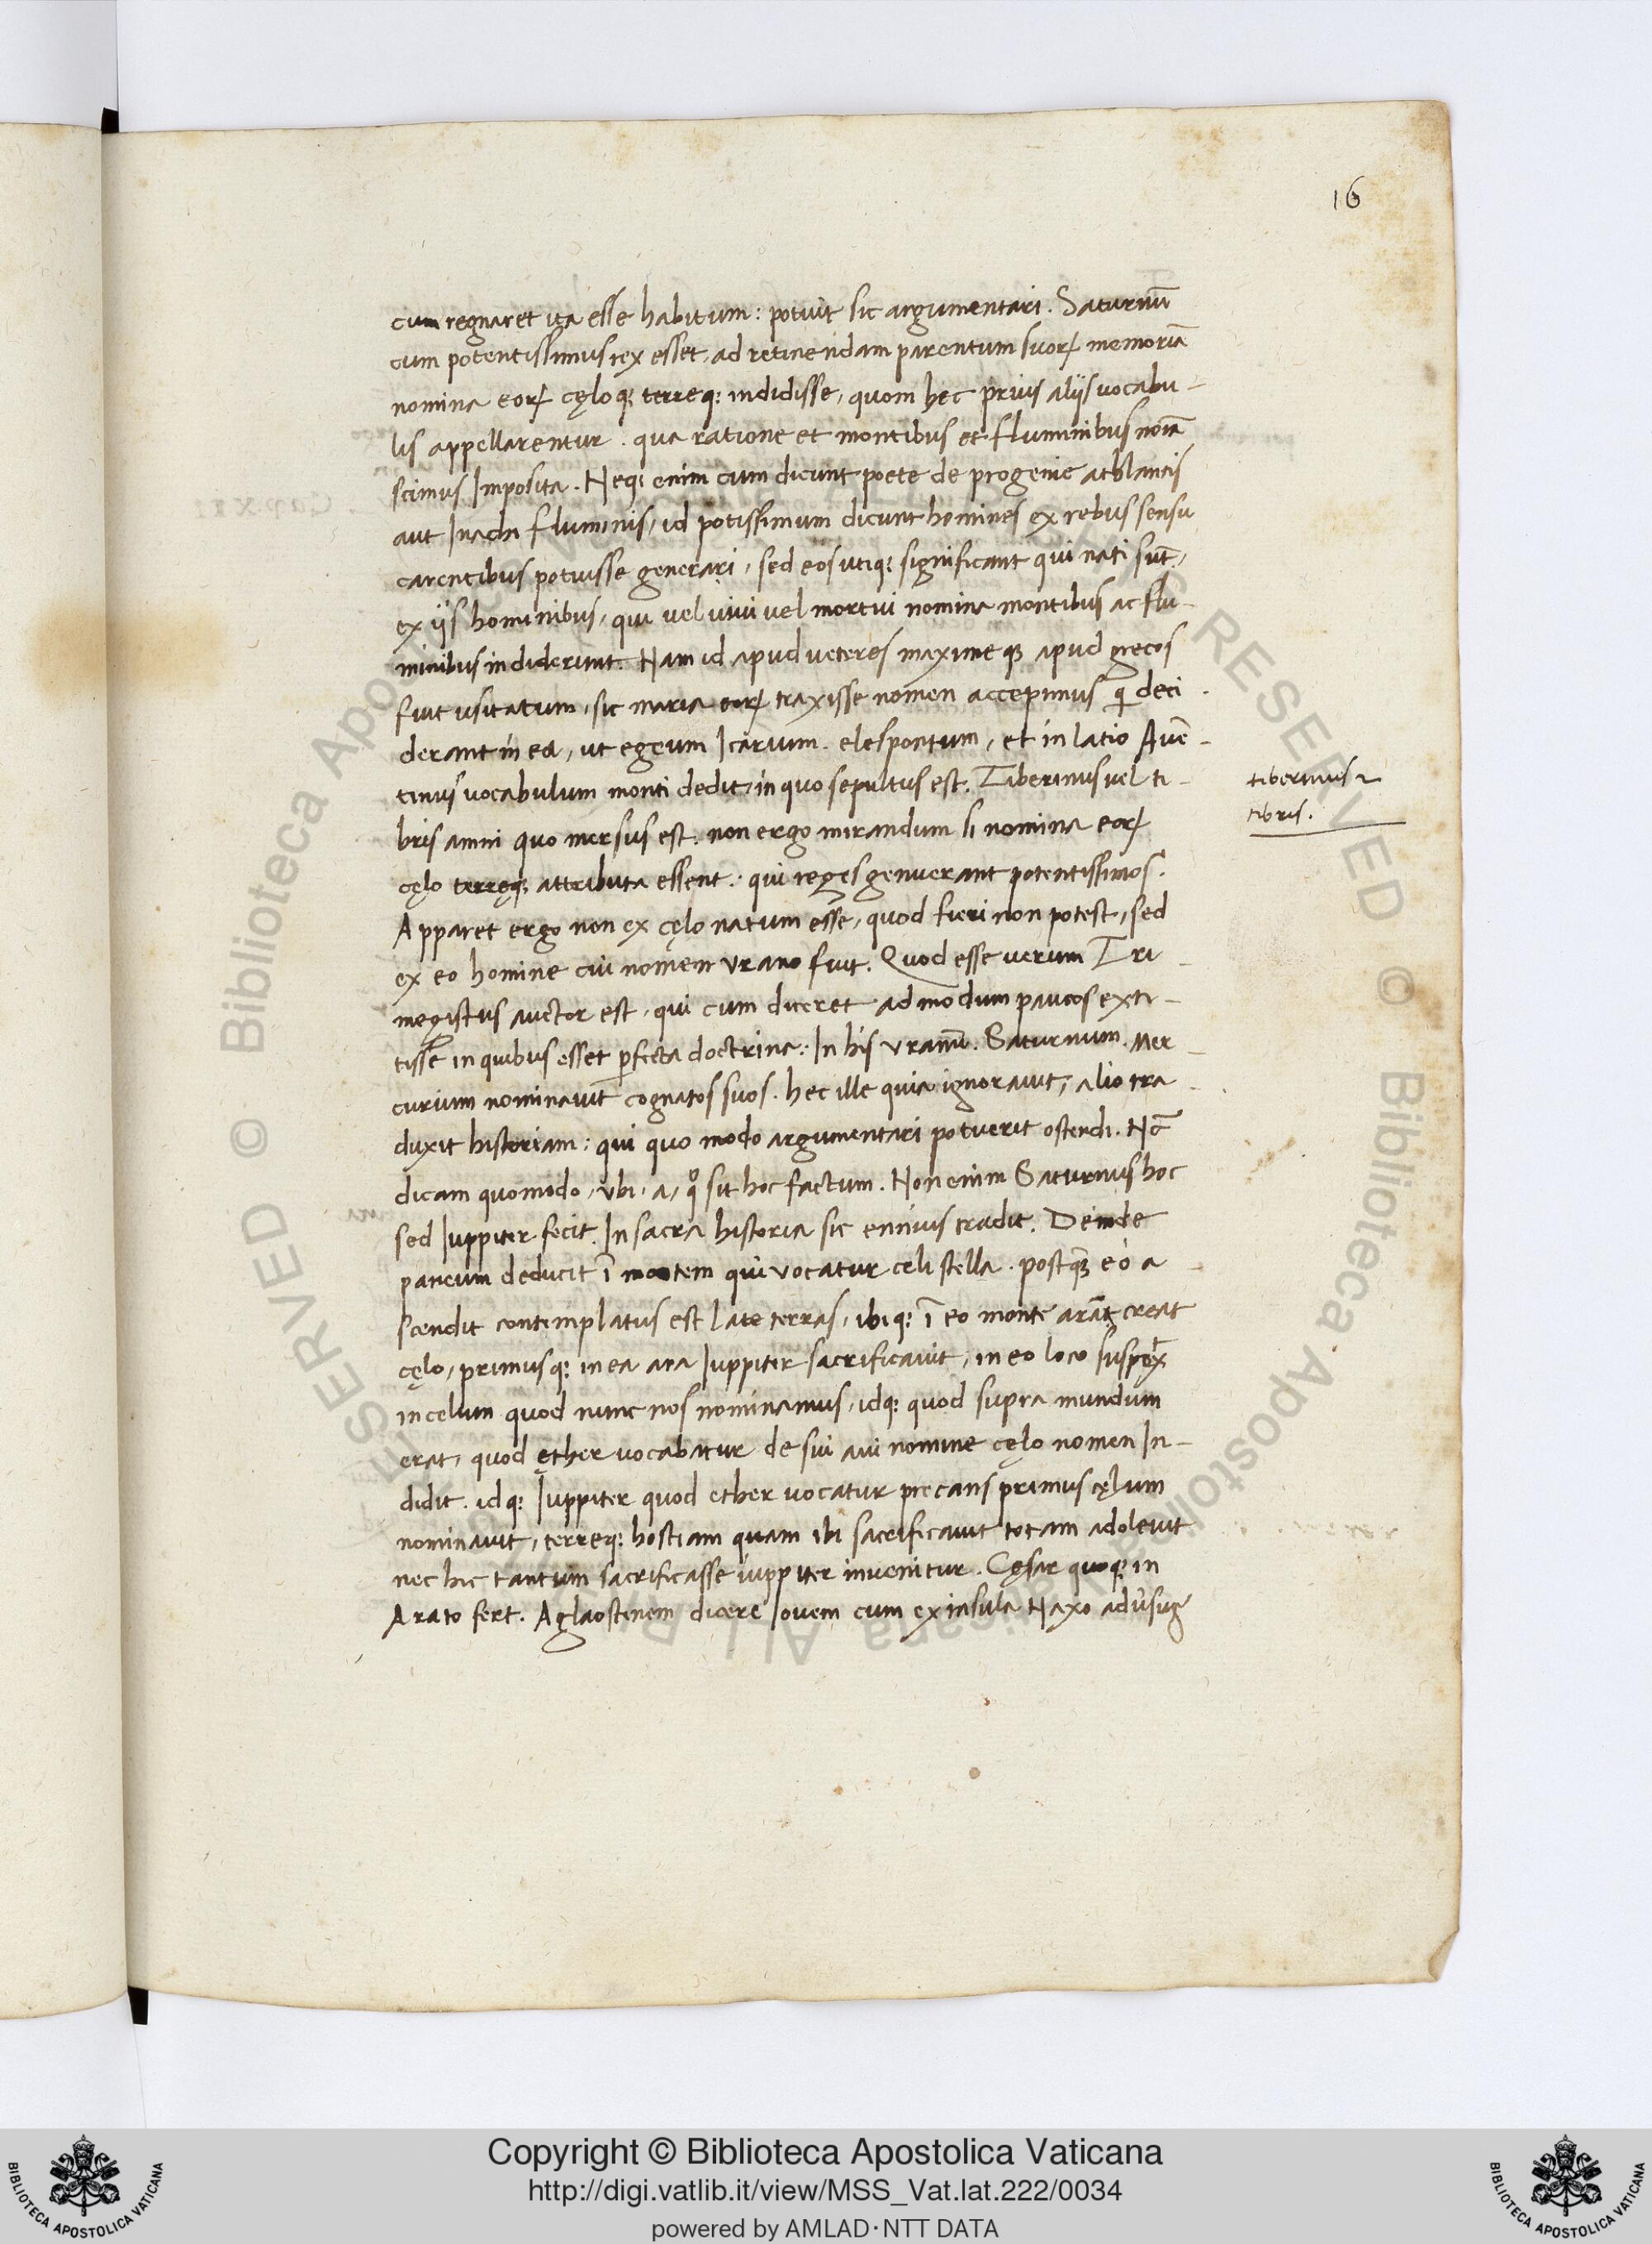 16
cum regnaret ita esse habitum: potuit sic argumentari. Saturnū
cum potentissimus rex esset, ad retinendam parentum suoꝝ memoriā
nomina eoꝝ cęlo qꝫ terreqꝫ indidisse, quom hec prius alijs vocabu-
lis appellarentur. qua ratione et montibus et fluminibus noīa
scimus Imposita. Neqꝫ enim cum dicunt poete de progenie athlantis
aut Inachi fluminis, id potissimum dicunt homines ex rebus sensu
carentibus potuisse generari, sed eos utiqꝫ significant qui nati sūt,
ex ijs hominibus, qui vel vivi vel mortui nomina montibus ac flu-
minibus indiderunt. Nam id apud veteres maxime qꝫ apud grecos
fuit usitatum, sic maria eoꝝ traxisse nomen accepimus q̄ deci-
derant in ea, ut egeum Icarium. elespontum, et in latio Auē-
tinus vocabulum monti dedit, in quo sepultus est. Tiberinus vel ti-
bris amni quo mersus est. non ergo mirandum si nomina eoꝝ
cęlo terręqꝫ attributa essent. qui reges genuerant potentissimos.
Apparet ergo non ex cęlo natum esse, quod fieri non potest, sed
ex eo homine cui nomen vrano fuit. Quod esse verum Tri-
megistus auctor est, qui cum diceret admodum paucos exti-
tisse in quibus esset ꝑfecta doctrina: In his vranū. Saturnum. Mer-
curium nominavit cognatos suos. hec ille quia ignoravit, alio tra-
duxit historiam: qui quo modo argumentari potuerit ostendi. Nc̄
dicam quomodo, vbi, a, qͦ sit hoc factum. Non enim Saturnus hoc
sed Iuppiter fecit. In sacra historia sic ennius tradit. Deinde
pancum deducit ī montem qui vocatur celi stella. postqꝫ eo a-
scendit contemplatus est late terras, ibiqꝫ ī eo monte arāt creat
cęlo, primusqꝫ in ea ara Iuppiter sacrificavit, in eo loco suspex̄
in celum quod nunc nos nominamus, idqꝫ quod supra mundum
erat, quod ęther vocabatur de sui avi nomine cęlo nomen In-
didit. idqꝫ Iuppiter quod ether vocatur precans primus cęlum
nominavit, terreqꝫ hostiam quam ibi sacrificavit totam adolevit
nec hic tantum sacrificasse iuppiter invenitur. Cęsar quoqꝫ in
Arato fert. Aglaostenem dicere Iovem cum ex insula Naxo advsus
tiberinus ⁊
tibris.
© Biblioteca Apostolica Vaticana ALL RIGHTS RESERVED © Biblioteca Apostolica Vaticana ALL RIGHTS RESERVED
Copyright © Biblioteca Apostolica Vaticana
http://digi.vatlib.it/view/MSS_Vat.lat.222/0034
powered by AMLAD·NTT DATA
BIBLIOTECA APOSTOLICA VATICANA
BIBLIOTECA APOSTOLICA VATICANA